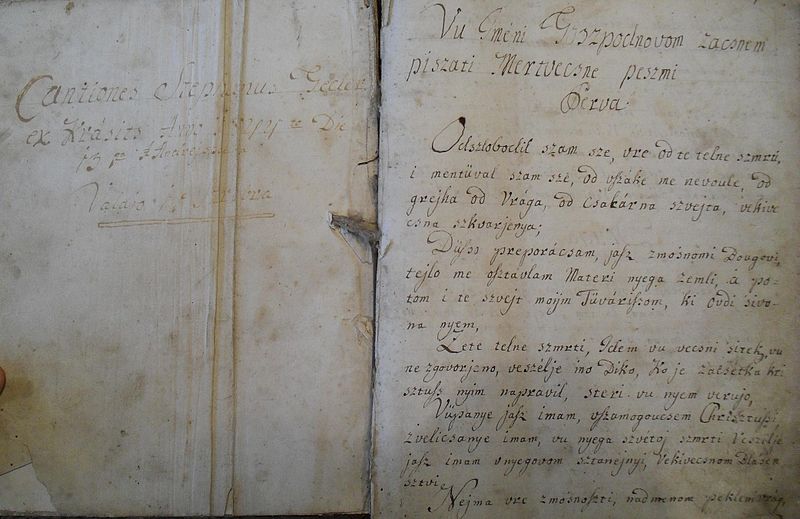 Cantiones Stephanus Geclei
ex Krásits
13
Vu Imeni Goszpodnovom zacsnem
piszati Mertvecsne peszmi
Perva
Odszlobodil szam sze, vre od te telne szmrti,
i mentüval szam sze, od vszáke me nevoule, od
grejha od Vrága, od Csakárna szvejta, vekive
csna szkvarjenya;
Düsso preporácsam, jasz zmósnomi Bougovi,
tejlo me osztávlam Materi nyega zemli, á po-
tom i te szvejt moijm Tüvárissom, ki ovdi sivo-
na nyem,
Z ete telne szmrti, Idem vu vecsni sitek, vu
ne zgovorjeno, veszélje ino Diko, Ko je Kri
sztuss nyim napravil, steri vu nyem verujo,
Vüpanye jasz imam, vszamogoucsem Chrisztussi
zvelicsanye imam, vu nyega szvetoj szmrti Veszélje
jasz imam vnyegovom sztanejnyi, Vekivecsnom Blasen
sztvi
Nejma vre zmósnoszti, nad menom peklem vrág,